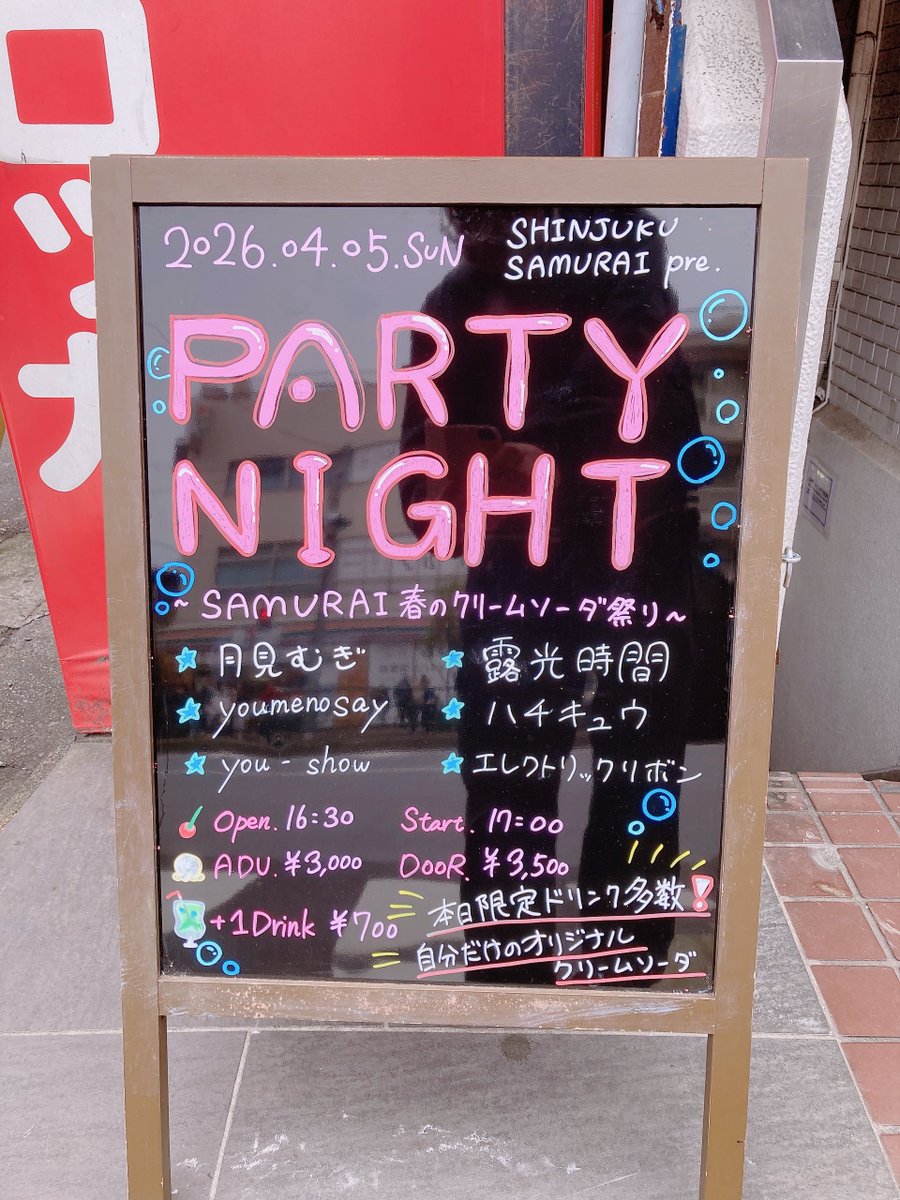 ロッカ
2026.04.05.SUN
SHINJUKU
SAMURAI pre.
PARTY
NIGHT
~SAMURAI 春のクリームソーダ祭り~
★ 月見むぎ
★ 露光時間
★ youmenosay
★ ハチキュウ
★ you-show
★ エレクトリックリボン
Open. 16:30 Start. 17:00
ADV. ¥3,000 DooR. ¥3,500
+1Drink ¥700
本日限定ドリンク多数!
自分だけのオリジナル
クリームソーダ